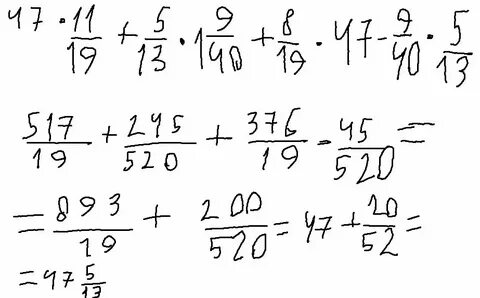 47 · 11/19 + 5/13 · 1 9/40 + 8/19 · 47 - 9/40 · 5/13
517/19 + 245/520 + 376/19 - 45/520 =
= 893/19 + 200/520 = 47 + 20/52 =
= 47 5/13